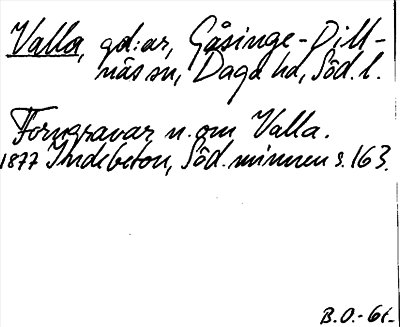 Valla, gd:ar, Gåsinge-Dill-
näs sn, Daga hd, Söd. l.
Forngravar n. om Valla.
1877 Indebetou, Söd. minnen s. 163.
B.O.-61-